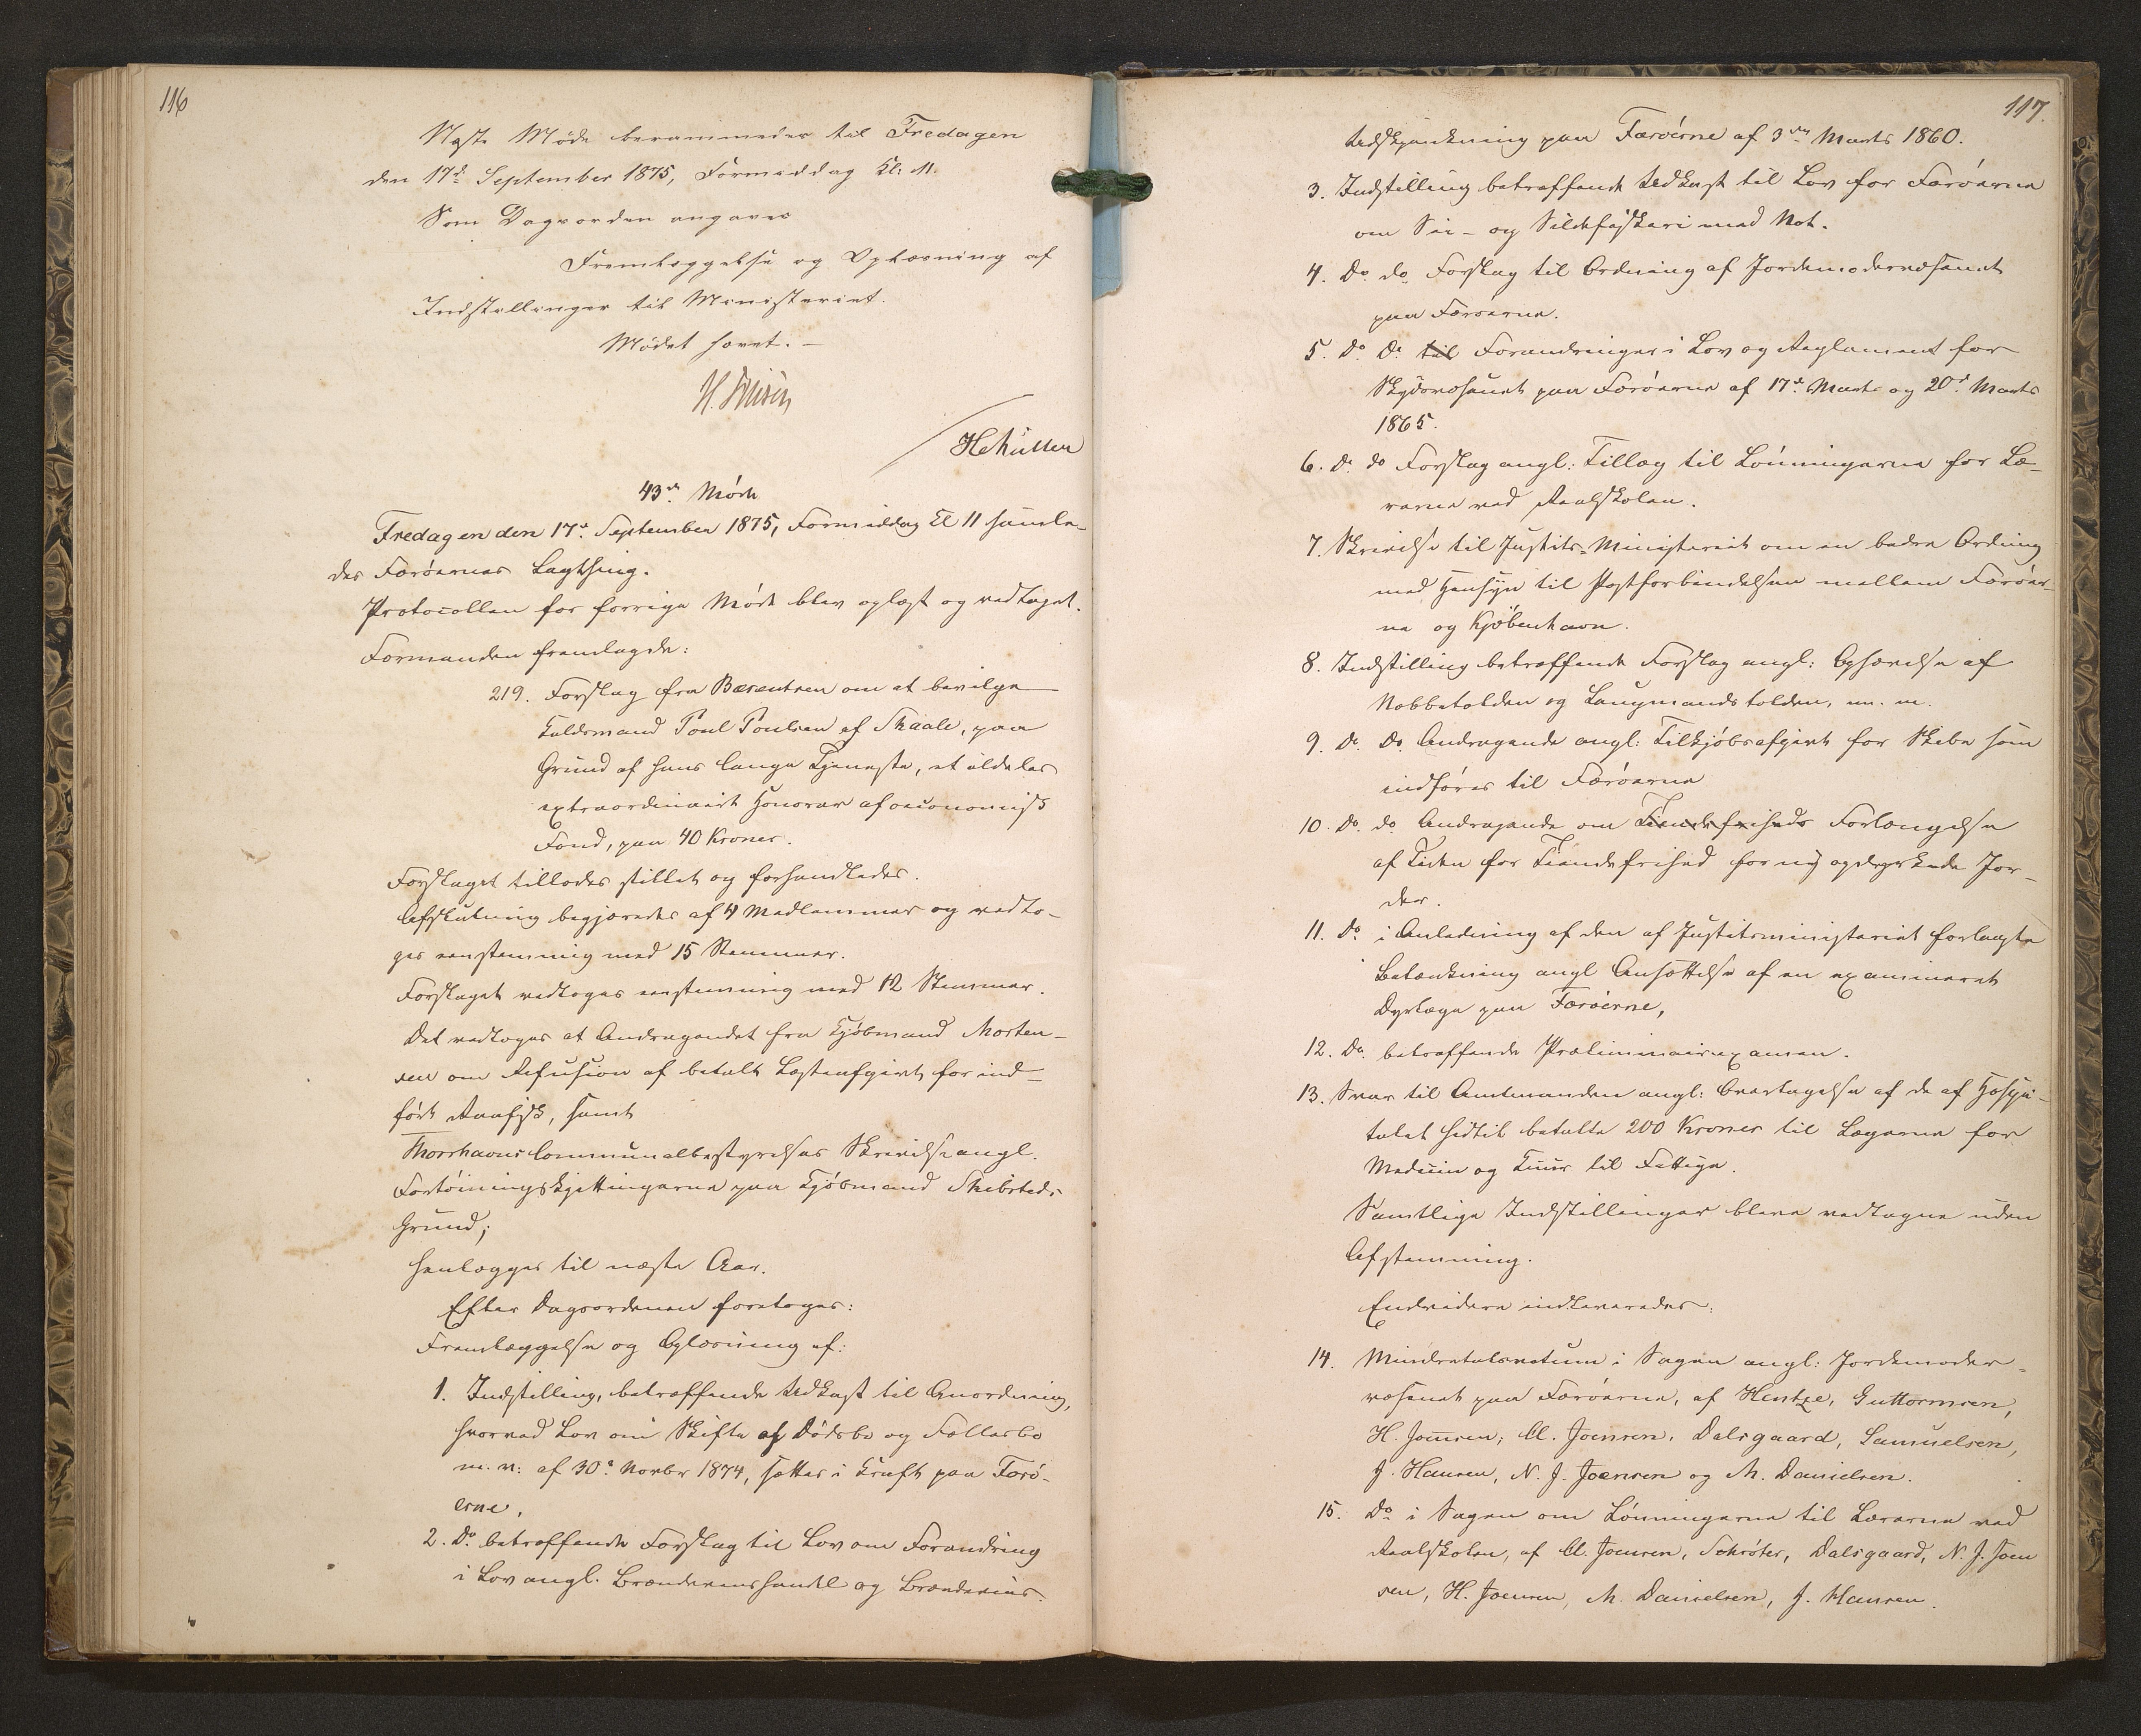 116
Næste Møde berammedes til Fredagen
den 17d. September 1875, Formiddag Kl: 11.
Som Dagsorden angaves
Fremlæggelse og Oplæsning af
Indstillinger til Ministeriet.
Mødet hævet. –
43de Møde
Fredagen den 17d. September 1875, Formiddag Kl 11 samle-
des Færøernes Lagthing.
Protocollen for forrige Møde blev oplæst og vedtaget.
Formanden fremlagde:
219. Forslag fra Bærentsen om at bevilge
Kuldsmand Poul Poulsen af Skaale, paa
Grund af hans lange Tjeneste, et aldeles
extraordinairt Honorar af oeconomisk
Fond, paa 40 Kroner.
Forslaget tillodes stillet og forhandledes.
Afslutning begjæredes af 4 Medlemmer og vedto-
ges eenstemmig med 15 Stemmer.
Forslaget vedtoges eenstemmig med 12 Stemmer.
Det vedtoges at Andragendet fra Kjøbmand Morten-
sen om Refusion af betalt Lastafgivt for ind-
ført Raafisk, samt
Thorshavns Communalbestyrelses Skrivelse angl.
Fortøiningskjettingerne paa Kjøbmand Skibsteds
Grund;
henlægges til næste Aar.
Efter Dagsordenen foretoges:
Fremlæggelse og Oplæsning af:
1. Indstilling, betræffende Udkast til Anordning,
hvorved Lov om Skifte af Dødsbo og Fællesbo
m. v: af 30d. Novbr 1874, sættes i Kraft paa Færø-
erne.
2. Do. betræffende Forslag til Lov om Forandring
i Lov angl. Brændeviinshandel og Brændeviins-
117.
udskjænkning paa Færøerne af 3die Marts 1860.
3. Indstilling betræffende Udkast til Lov for Færøerne
om Sei- og Sildefiskeri med Not.
4. Do. do. Forslag til Ordning af Jordemodervæsenet
paa Færøerne.
5. Do. Do. til Forandringer i Lov og Reglement for
Skydsvæsenet paa Færøerne af 17d. Marts og 20d. Marts
1865.
6. Do. do Forslag angl: Tillæg til Lønningerne for Læ-
rerne ved Realskolen.
7. Skrivelse til Justits-Ministeriet om en bedre Ordning
med Hensyn til Postforbindelsen mellem Færøer-
ne og Kjøbenhavn.
8. Indstilling betræffende Forslag angl: Ophævelse af
Næbbetolden og Laugmandstolden, m. m.
9. Do. Do. Andragende angl: Tilkjøbsafgivt for Skibe som
indføres til Færøerne
10. Do. do. Andragende om Tiendefriheds Forlængelse
af Tiden for Tiendefrihed for ny opdyrkede Jor-
der.
11. Do. i Anledning af den af Justitsministeriet forlangte
Betænkning angl Ansættelse af en examineret
Dyrlæge paa Færøerne,
12. Do. betræffende Præliminairexamen.
13. Svar til Amtmanden angl: Overtagelse af de af Hospi-
talet hidtil betalte 200 Kroner til Lægerne for
Medicin og Kuur til Fattige.
Samtlige Indstillinger bleve vedtagne uden
Afstemning.
Endvidere indleveredes:
14. Mindretalsvotum i Sagen angl: Jordemoder-
væsenet paa Færøerne, af Hentze, Guttormsen,
H. Joensen, Cl. Joensen, Dalsgaard, Samuelsen,
J. Hansen, N. J. Joensen og M. Danielsen.
15. Do. i Sagen om Lønningerne til Lærerne ved
Realskolen, af Cl. Joensen, Schrøter, Dalsgaard, N. J. Joen
sen, H. Joensen, M. Danielsen, J. Hansen.